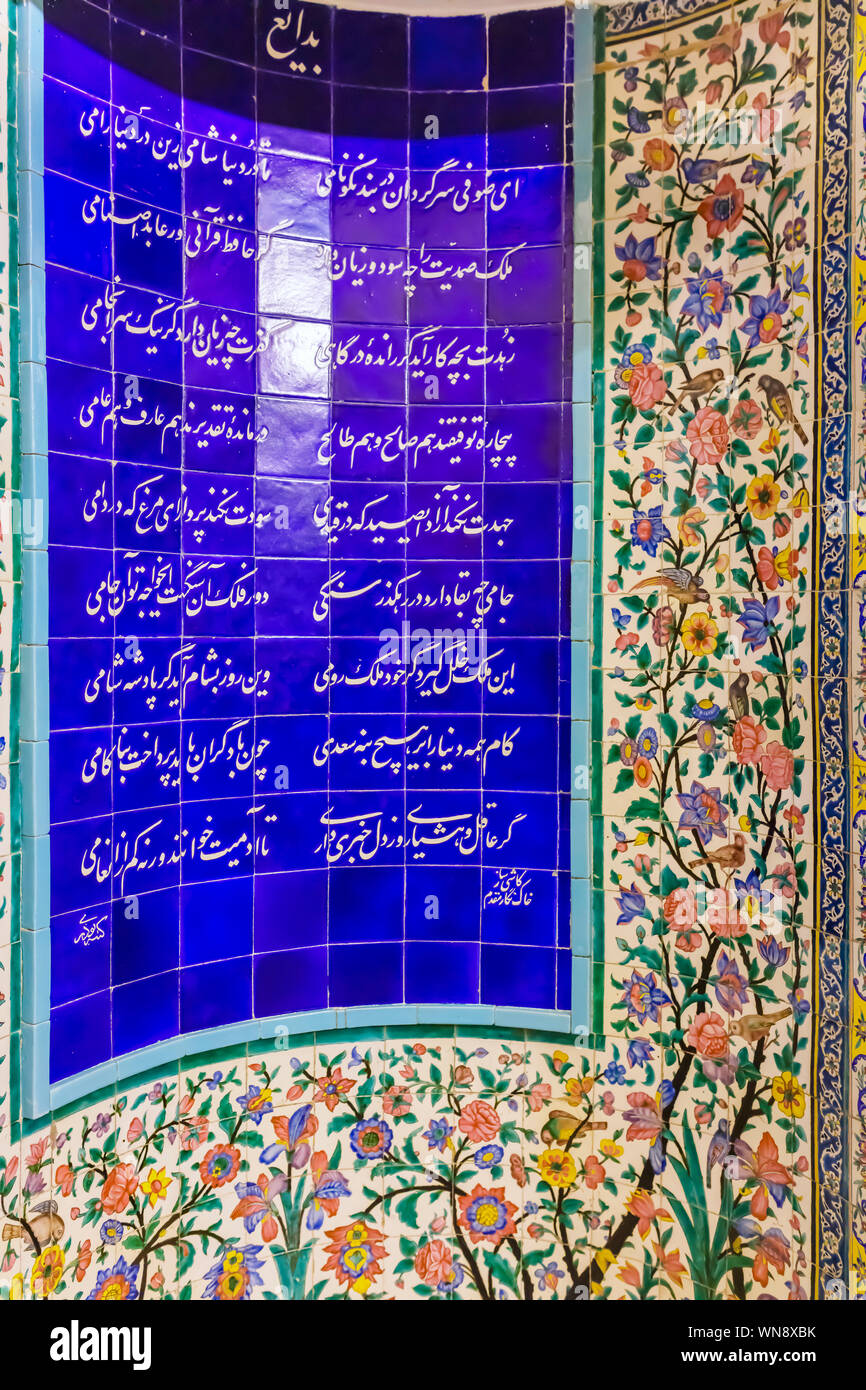 بدایع
ای صوفی سرگردان در بند نکونامی تا درد نیاشامی زین درد نیارامی
ملک صمدیّت را چه سود و زیان دارد گر حافظ قرآنی ور عابد اصنامی
زُهدت بچه کار آید گر راندهٔ درگاهی کفرت چه زیان دارد گر نیک سرانجامی
بیچارهٔ توفیقند هم صالح و هم طالح درماندهٔ تقدیرند هم عارف و هم عامی
جهدت نکند آزاد ای صید که در قیدی سودت نکند پرواز ای مرغ که در دامی
جامی چه بقا دارد در رهگذر سنگی دور فلک آن سنگست ایخواجه تو آن جامی
این ملک خلل گیرد گر خود ملک رومی وین روز بشام آید گر پادشه شامی
کام همه دنیا را بر هیچ منه سعدی چون با دگران باید پرداخت بناکامی
گر عاقل و هشیاری وز دل خبری داری تا آدمیت خوانند ورنه کم از انعامی
کاشی ساز
خاک نگار مقدم
کتبه بوذری
alamy
Image ID: WN8XBK
www.alamy.com